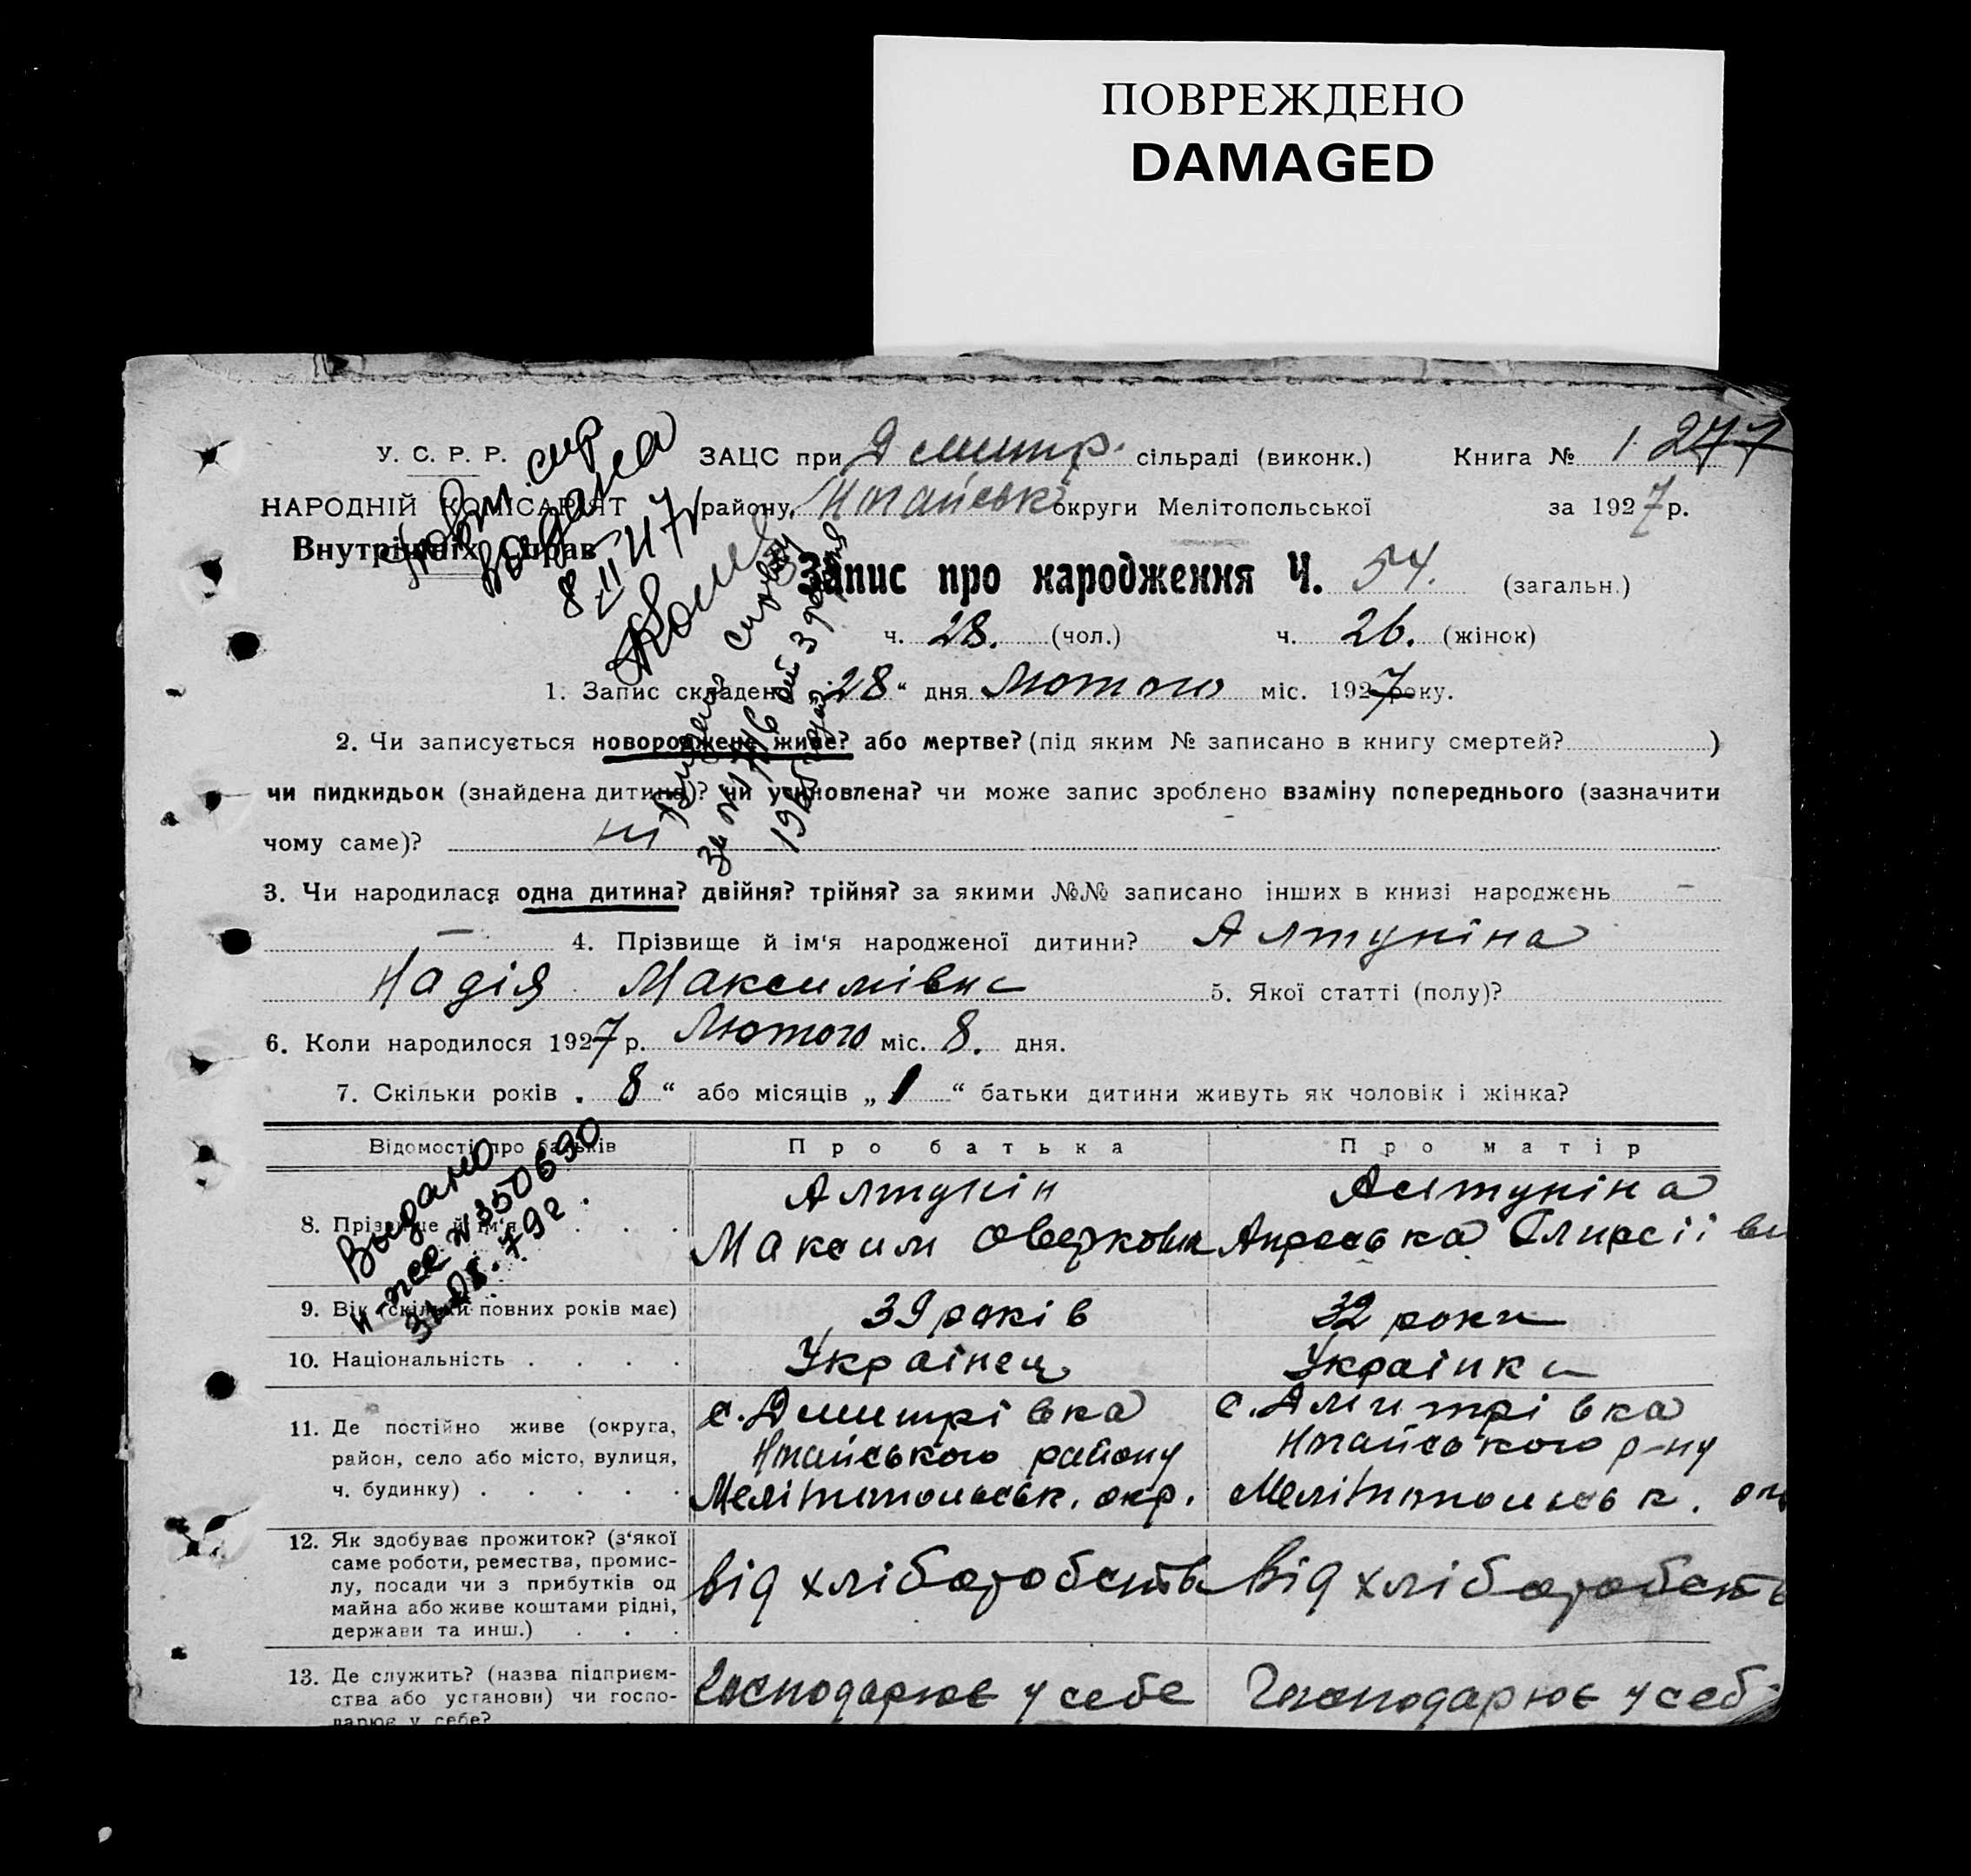 ПОВРЕЖДЕНО
DAMAGED
У. С. Р. Р.
НАРОДНІЙ КОМІСАРІЯТ
Внутрішніх Справ
ЗАЦС при Дмитр. сільраді (виконк.) Книга № 1 277
району, округи Мелітопольської за 1927 р.
Запис про народження Ч. 54. (загальн.)
ч. 28. (чол.) ч. 26. (жінок)
видана
8/II 47
1. Запис складено 28 “ дня Лютого міс. 1927 року.
2. Чи записується новороджене живе? або мертве? (під яким № записано в книгу смертей? )
чи пидкидьок (знайдена дитина)? чи усиновлена? чи може запис зроблено взаміну попереднього (зазначити
чому саме)?
3. Чи народилася одна дитина? двійня? трійня? за якими №№ записано інших в книзі народжень —
— 4. Прізвище й ім‘я народженої дитини? Алтуніна
Надія Максимівна 5. Якої статті (полу)?
6. Коли народилося 1927 р. Лютого міс. 8. дня.
7. Скільки років „ 8 “ або місяців „ 1 “ батьки дитини живуть як чоловік і жінка?
Відомості про батьків Про батька Про матір
Выдано
№ 350690
8. Прізвище й ім‘я . . . Алтунін Алтуніна
Максим Оверкович
9. Вік (скільки повних років має) 39 років 32 роки
10. Національність . . . . Українец Українка
11. Де постійно живе (округа, с. Дмитрівка с. Дмитрівка
район, село або місто, вулиця, Ногайського району Ногайського р-ну
ч. будинку) . . . . . Мелітопольськ. окр. Мелітопольськ.
12. Як здобуває прожиток? (з‘якої
саме роботи, ремества, промис-
лу, посади чи з прибутків од від хліборобств від хліборобств
майна або живе коштами рідні,
держави та инш.) . . .
13. Де служить? (назва підприєм- Господарює у себе Господарює у себе
ства або установи) чи госпо-
дарює у себе?